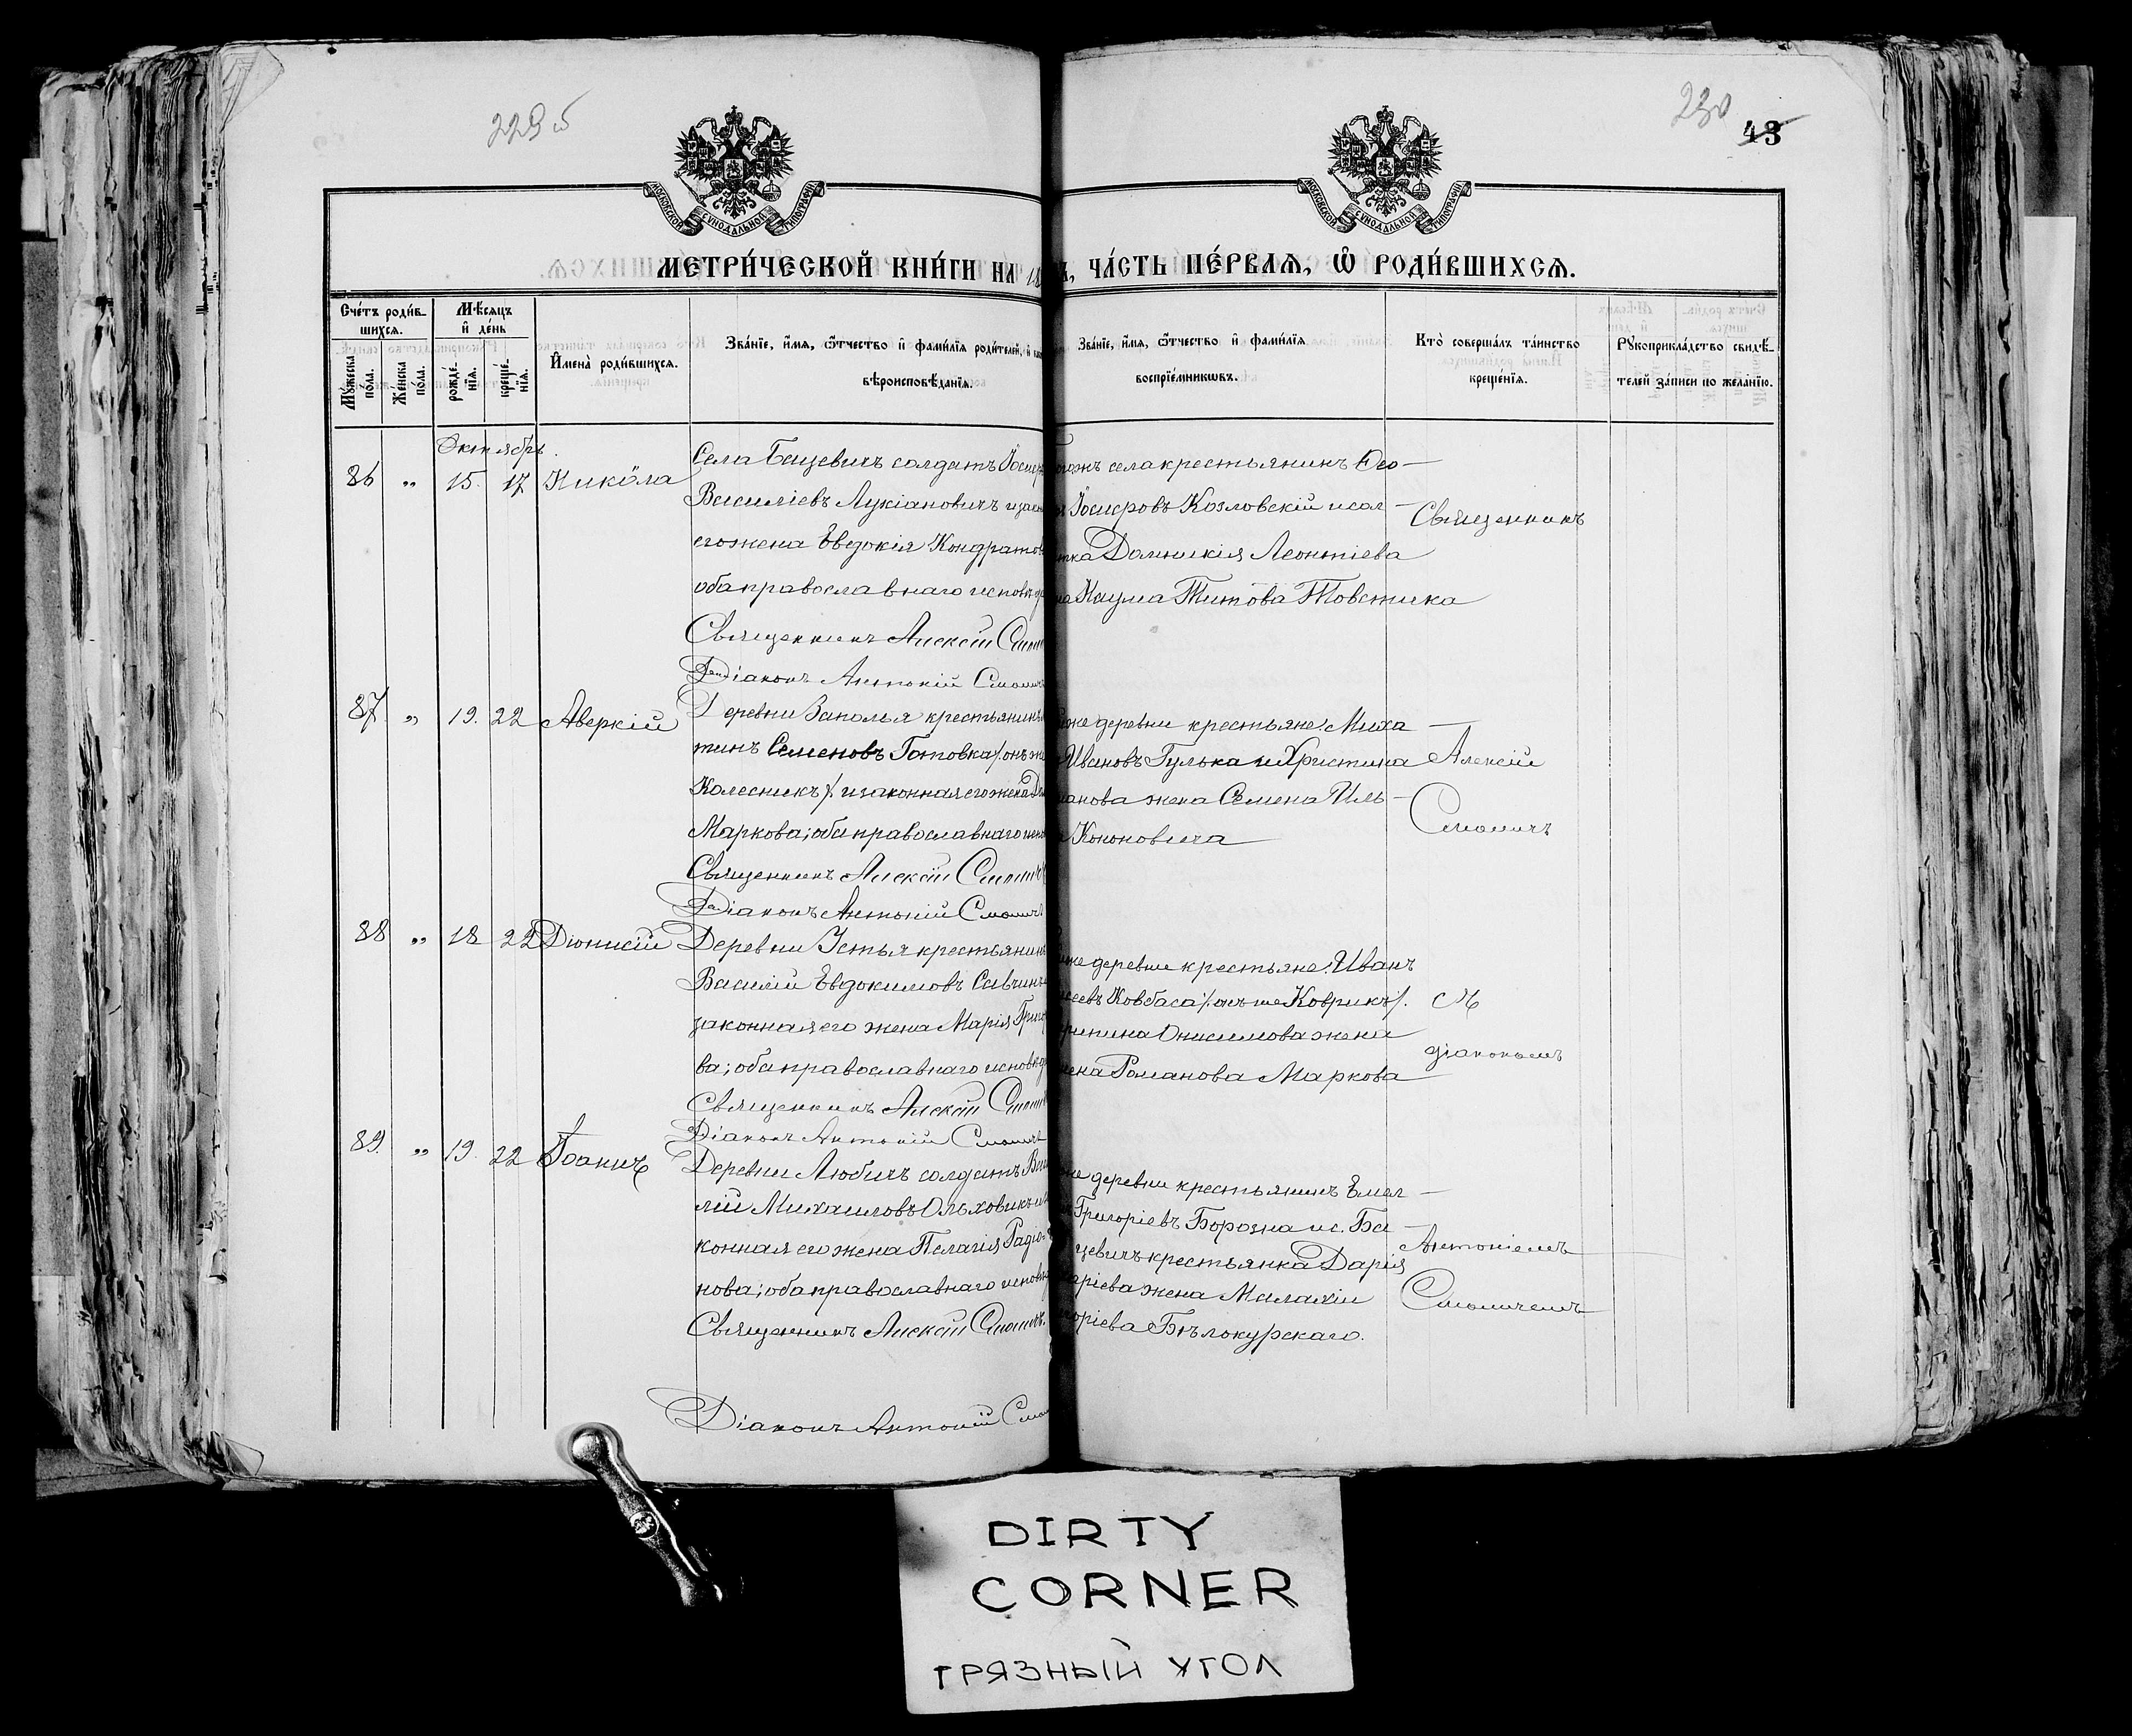 229 об
230
43
МОСКОВСКОЙ СѴНОДАЛЬНОЙ ТИПОГРАФІИ
МОСКОВСКОЙ СѴНОДАЛЬНОЙ ТИПОГРАФІИ
МЕТРИ́ЧЕСКОЙ КНИ́ГИ НА 18
ЧА́СТЬ ПЕ́РВАѦ, Ѿ РОДИ́ВШИХСѦ.
Сче́тъ роди́в-
шихсѧ.
Мѣ́сѧцъ
и҆ де́нь
Мꙋ́жеска
по́ла.
Же́нска
по́ла.
рожде́-
нїѧ.
креще́-
нїѧ.
И҆мена̀ роди́вшихсѧ.
Зва́нїе, и҆́мѧ, ѻ҆́тчество и҆ фами́лїѧ роди́телей, и҆
вѣроисповѣ́данїѧ.
Зва́нїе, и҆́мѧ, ѻ҆́тчество и҆ фами́лїѧ
воспрїе́мникѡвъ.
Кто̀ соверша́лъ та́инство
креще́нїѧ.
Рꙋкоприкла́дство свидѣ́-
телей за́писи по жела́нїю.
Октябрь.
86 „ 15. 17 Никола
Села Бацевичъ солдатъ
Василіевъ Лукіановичъ и
его жена Евдокія Кондратов
оба православнаго исповѣд
Священникъ Алексій
Діаконъ Антоній
села крестьянинъ Ѳео-
Іосифовъ Козловскій и сол-
Домникія Леонтіева
Наума Титова Товстика
Священникъ
87 „ 19. 22 Аверкій
Деревни Заполья крестьянинъ
тинъ Семеновъ Готовка /: онъ же
Колесникъ :/ и законная его жена
Маркова; оба православнаго испо
Священникъ Алексій Смоличъ
Діаконъ Антоній Смоличъ
же деревни крестьяне: Миха-
Ивановъ Гулька и Христина
жена Семена Иль-
Кононовича
Алексій
Смоличъ
88 „ 18 22 Діонисій
Деревни Устья крестьянинъ
Василій Евдокимовъ Савчинъ
законная его жена Марія Григор
ва; оба православнаго исповѣд
Священникъ Алексій
Діаконъ Антоній Смоличъ
же деревни крестьяне: Иванъ
Ковбаса /: онъ же Коврикъ :/.
Онисимова жена
Романова Маркова
съ
діакономъ
89. „ 19. 22 Іоаннъ
Деревни Любичъ солдатъ Васи
лій Михаиловъ Ольховикъ и за
конная его жена Пелагія Радіо
нова; оба православнаго исповѣд
Священникъ Алексій Смоличъ.
Діаконъ Антоній
же деревни крестьянинъ Емел-
Григоріевъ Борозна и с. Ба-
цевичъ крестьянка Дарія
жена Малахіи
Бѣлокурскаго.
Антоніемъ
Смоличемъ
DIRTY
CORNER
ГРЯЗНЫЙ УГОЛ